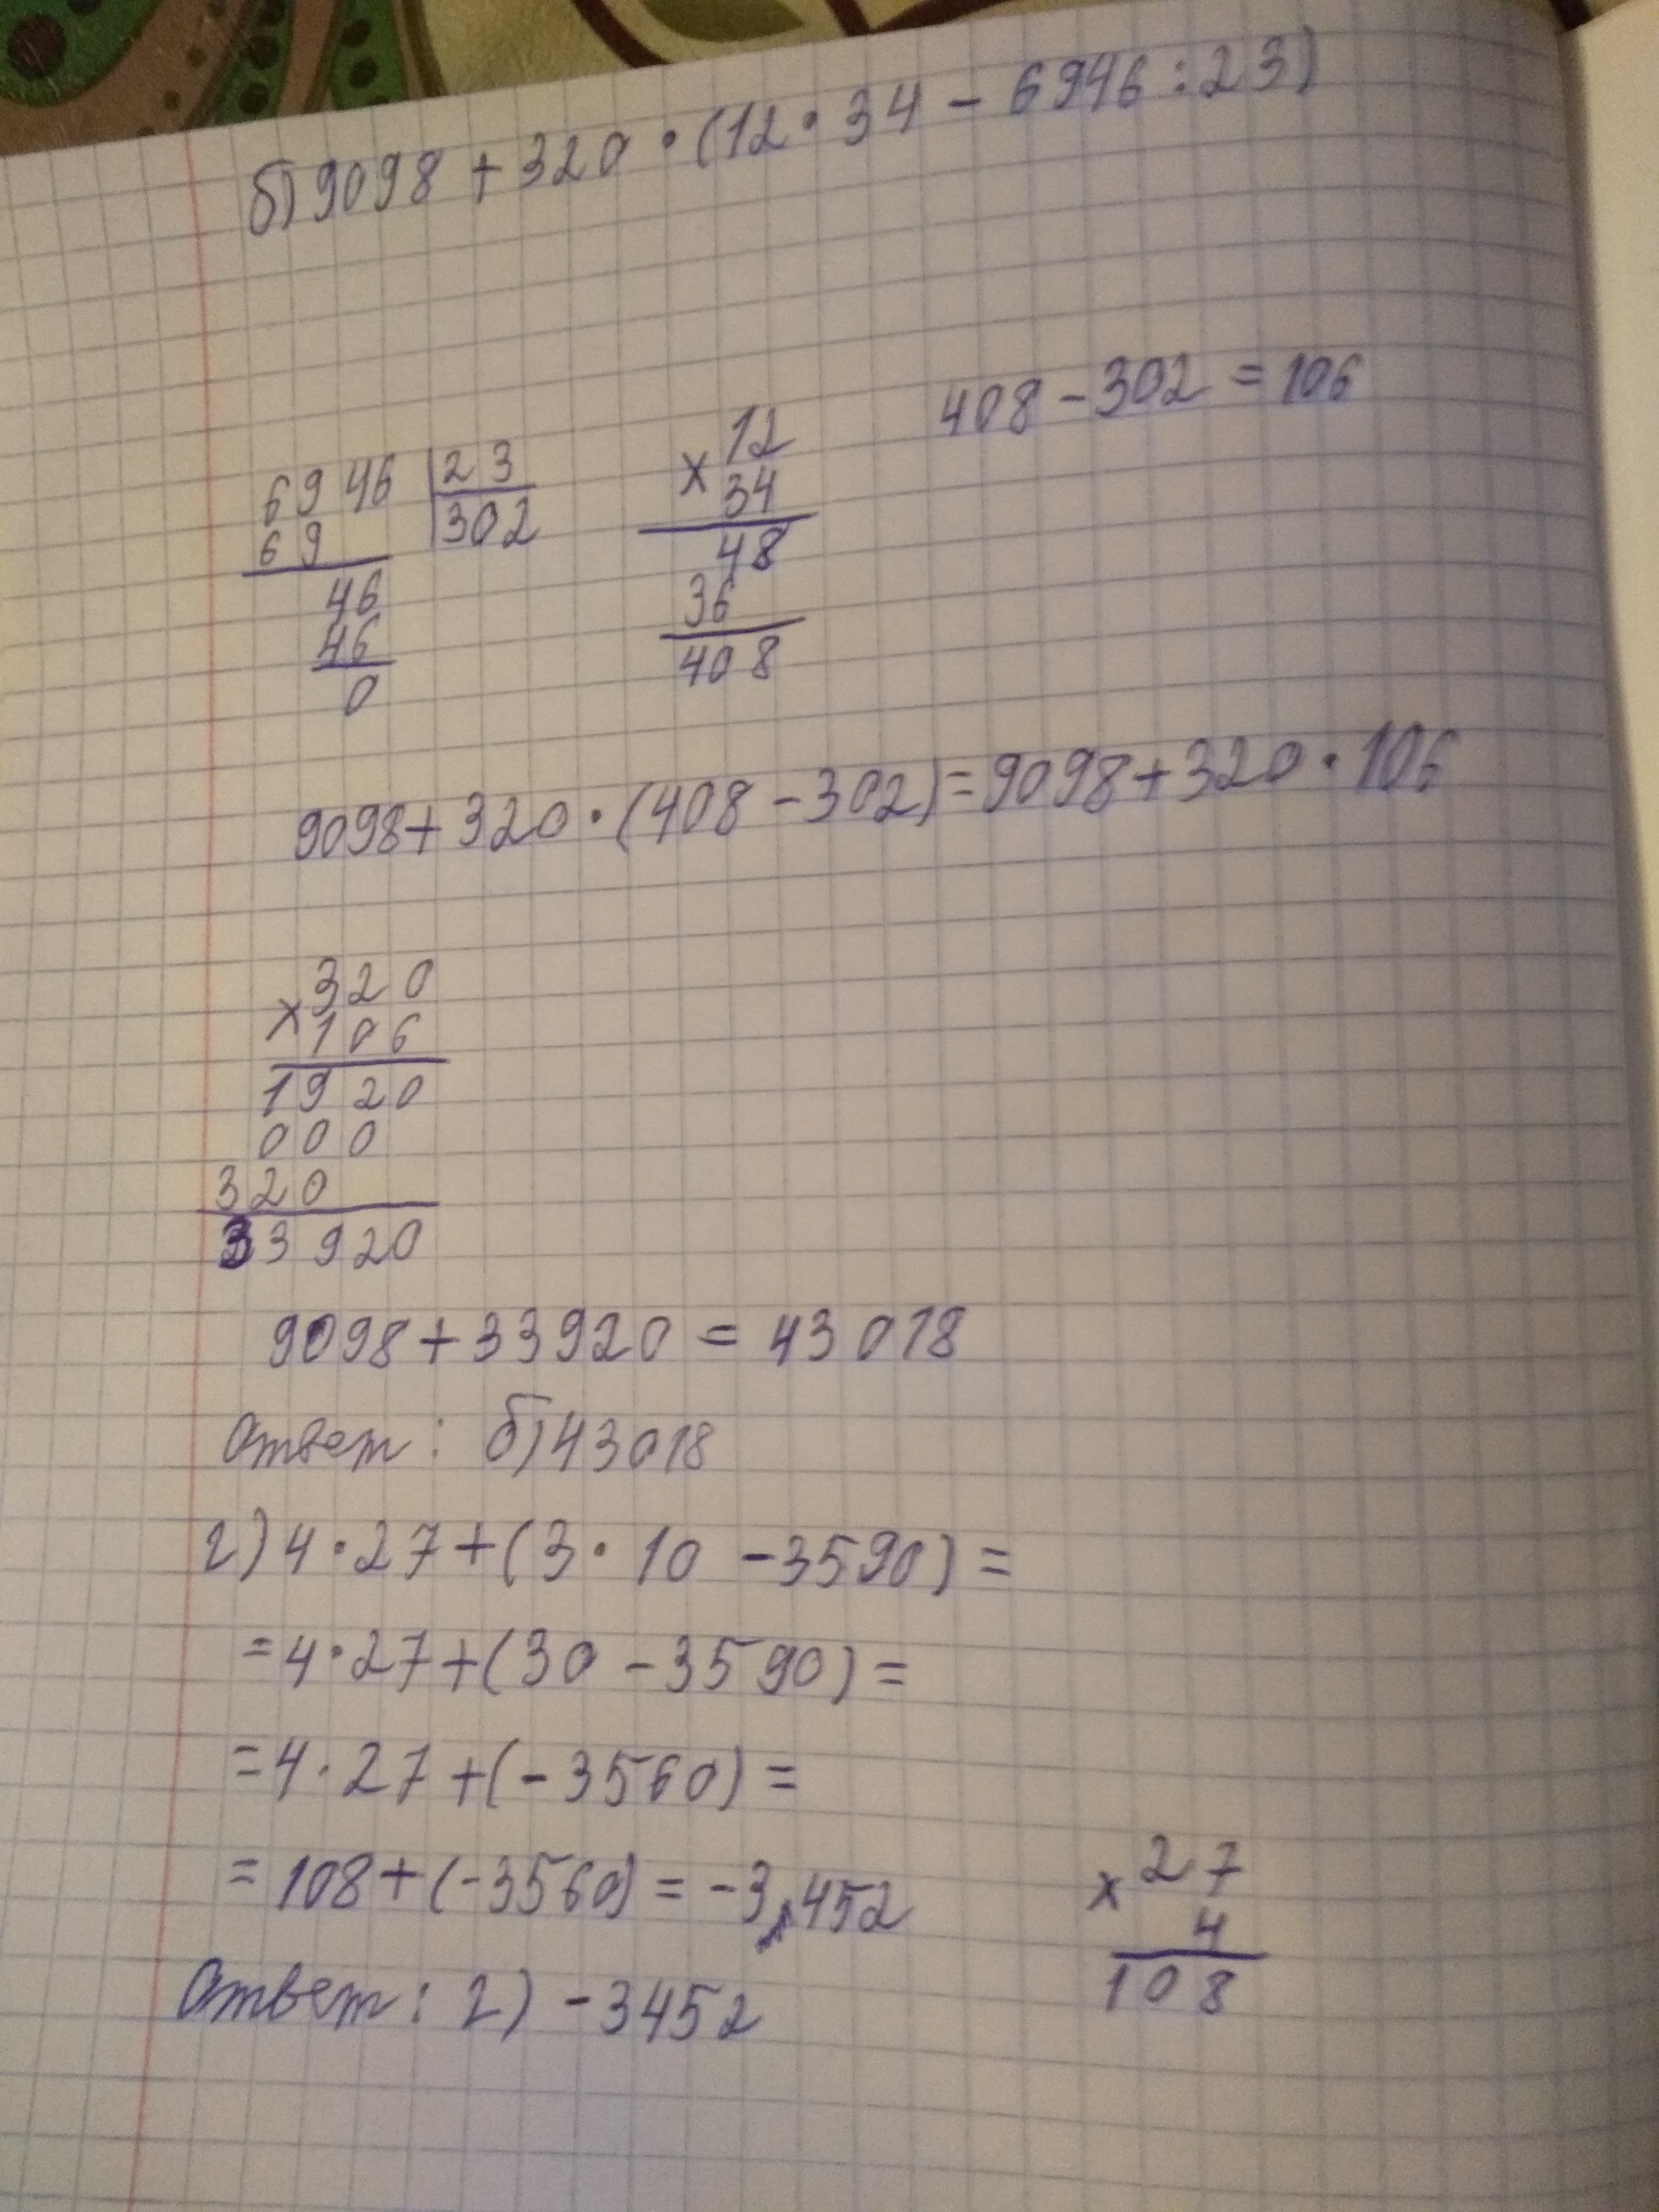 б) 9098 + 320 · (12 · 34 - 6946 : 23)
6946 | 23
69 302
46
46
0
× 12
34
48
36
408
408 - 302 = 106
9098 + 320 · (408 - 302) = 9098 + 320 · 106
× 320
106
1920
000
320
33920
9098 + 33920 = 43018
Ответ: б) 43018
г) 4 · 27 + (3 · 10 - 3590) =
= 4 · 27 + (30 - 3590) =
= 4 · 27 + (-3560) =
= 108 + (-3560) = -3452
× 27
4
108
Ответ: г) -3452